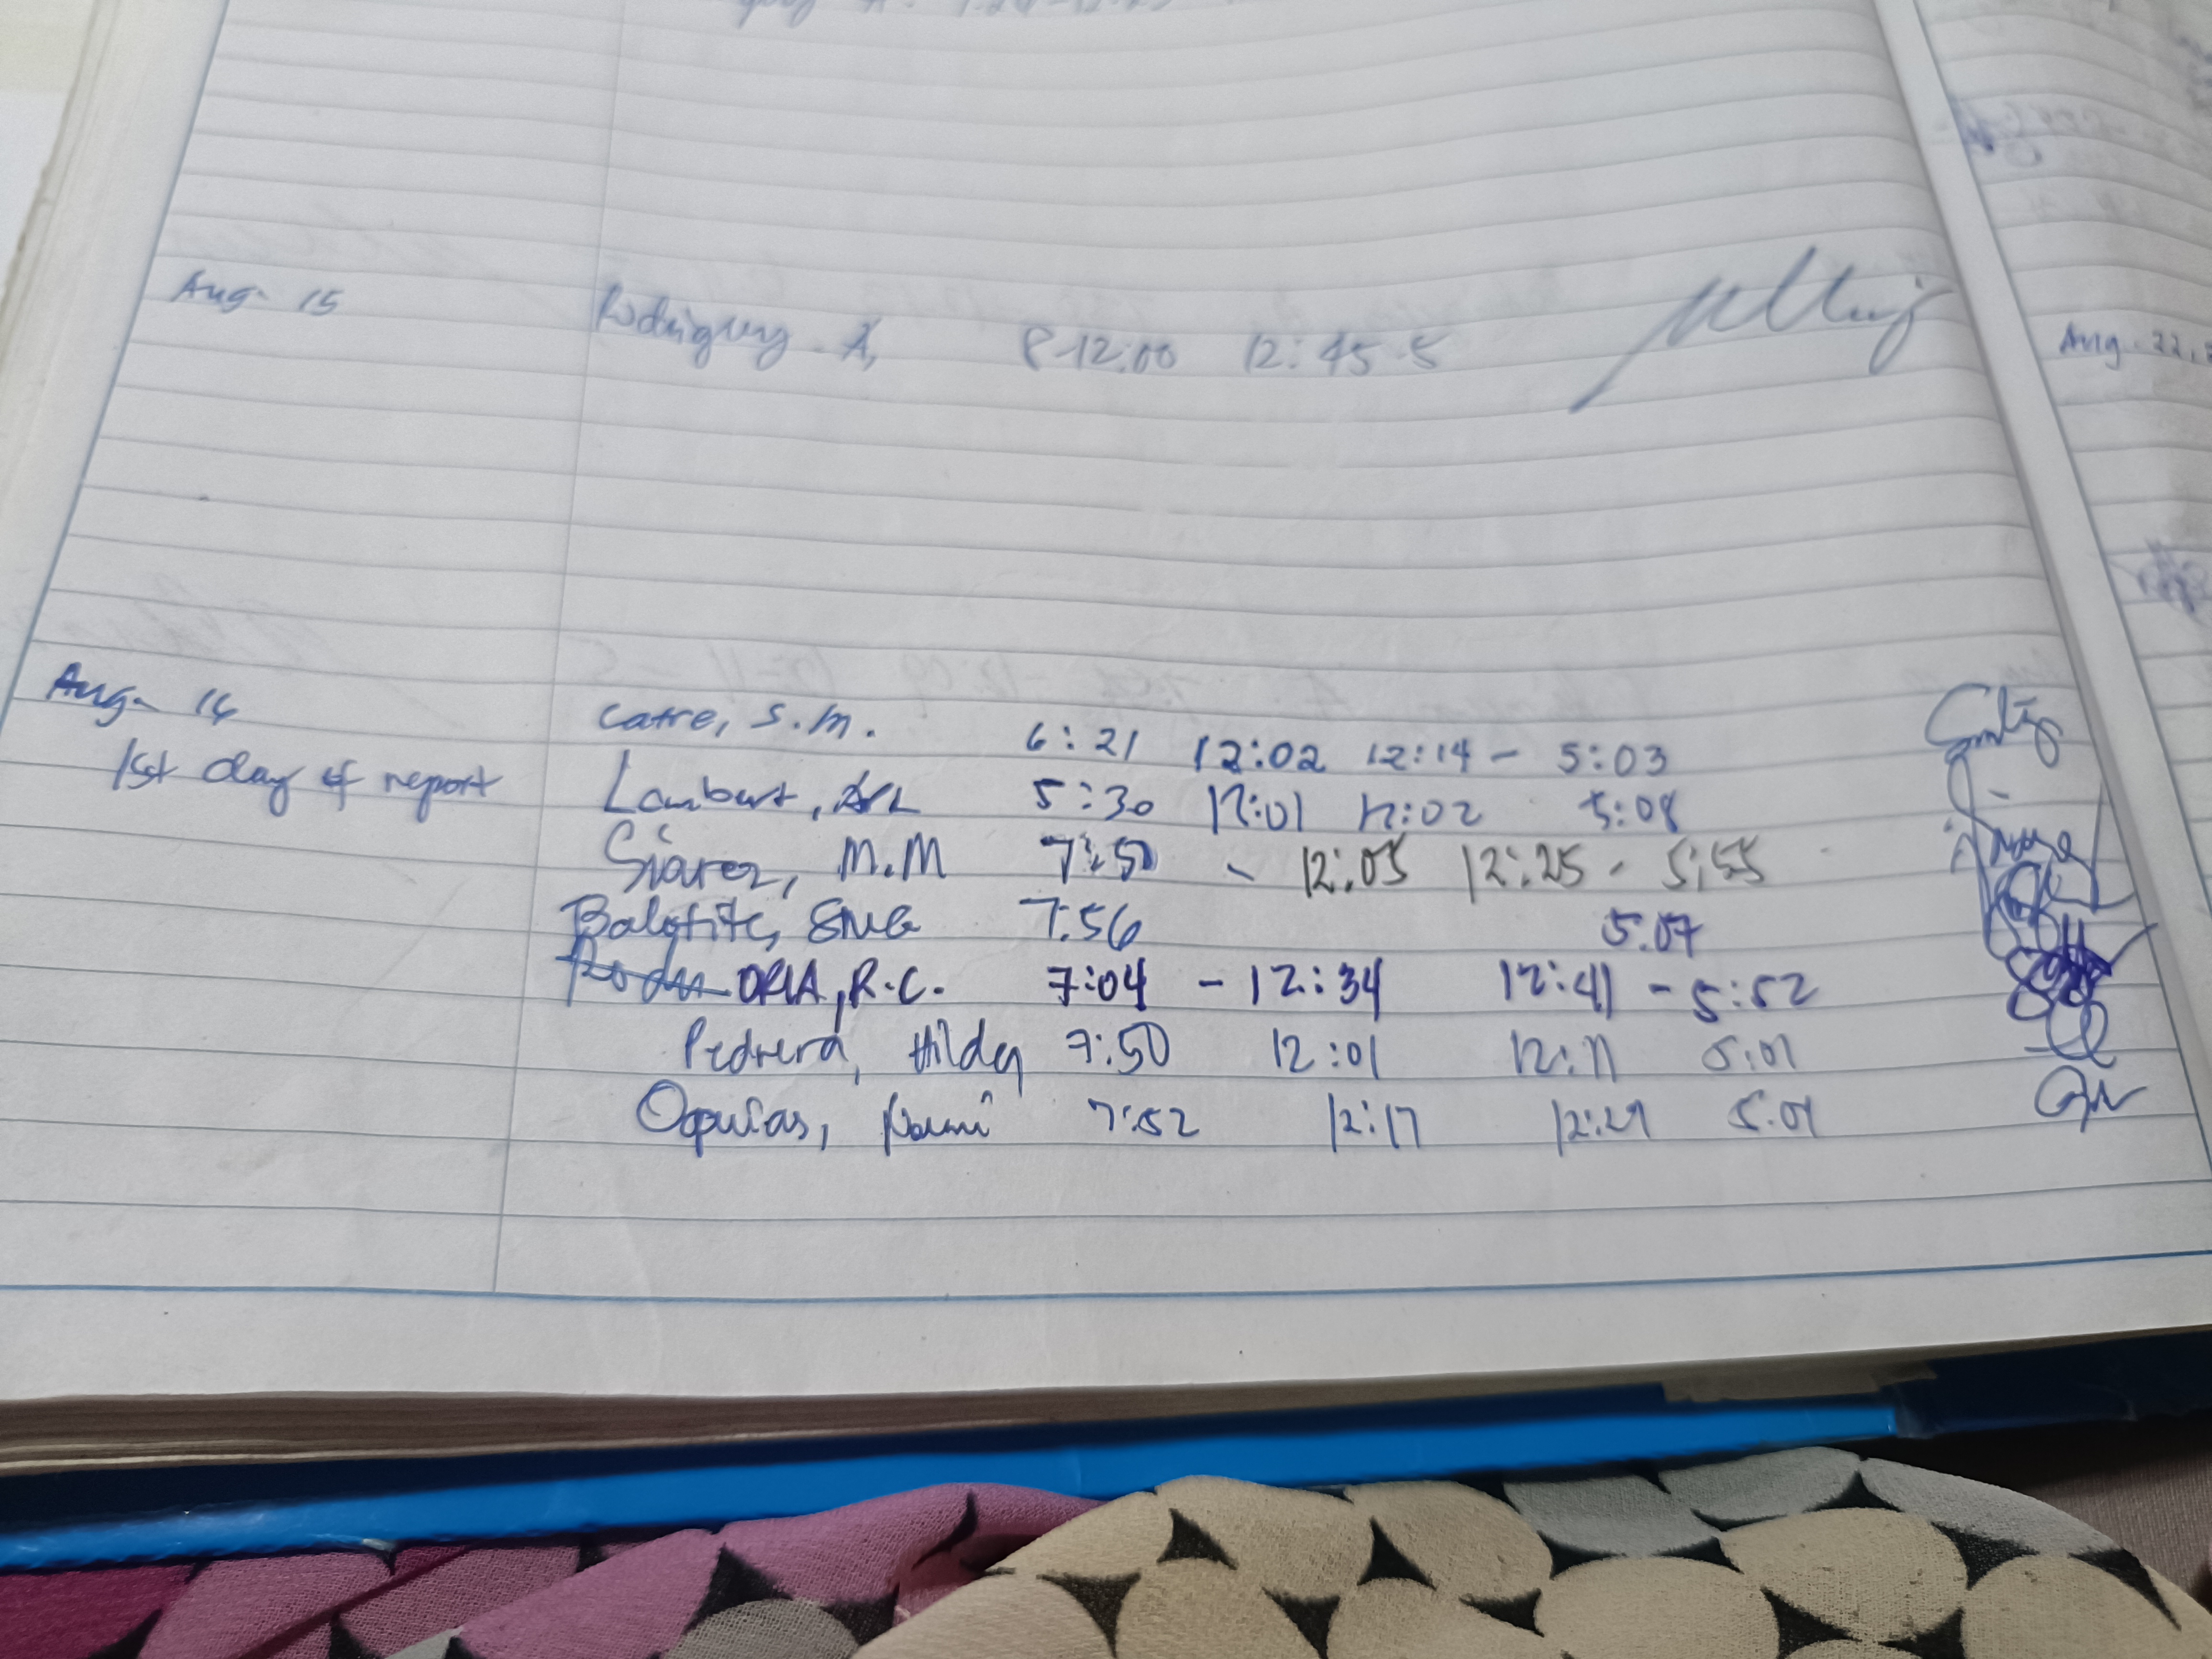 Aug. 15 Rodriguez A, 8-12:00 12:45-5
Aug. 16 Catre, S.M. 6:21 12:02 12:14 - 5:03
1st day of report Lambert, 5:30 12:01 12:02 5:08
Siarez, M.M 7:50 - 12:05 12:25 - 5:55
Balotite, SMG 7:56 5.07
ORIA, R.C. 7:04 - 12:34 12:41 - 5:52
Pedrera, Hilda 7:50 12:01 12:11 5:01
Oquias, Naumi 7:52 12:17 12:27 5.01
Aug. 22,